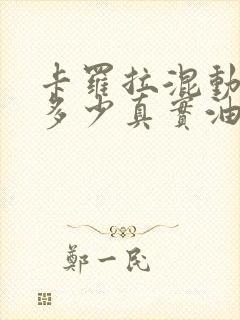 卡羅拉混動
多少真實油
鄭一民